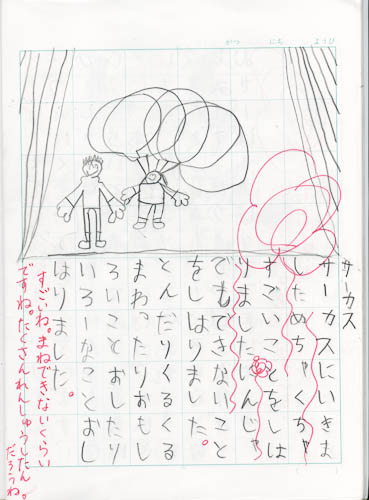 がつ にち ようび
サーカス
サーカスにいきま
した。めちゃくちゃ
すごいことをしは
りました。にんじゃ
でもできないこと
をしはりました。
とんだりくるくる
まわったりおもし
ろいことおしたり
いろーなことおし
はりました。
すごいね。まねできないくらい
ですね。たくさんれんしゅうしたん
だろうね。